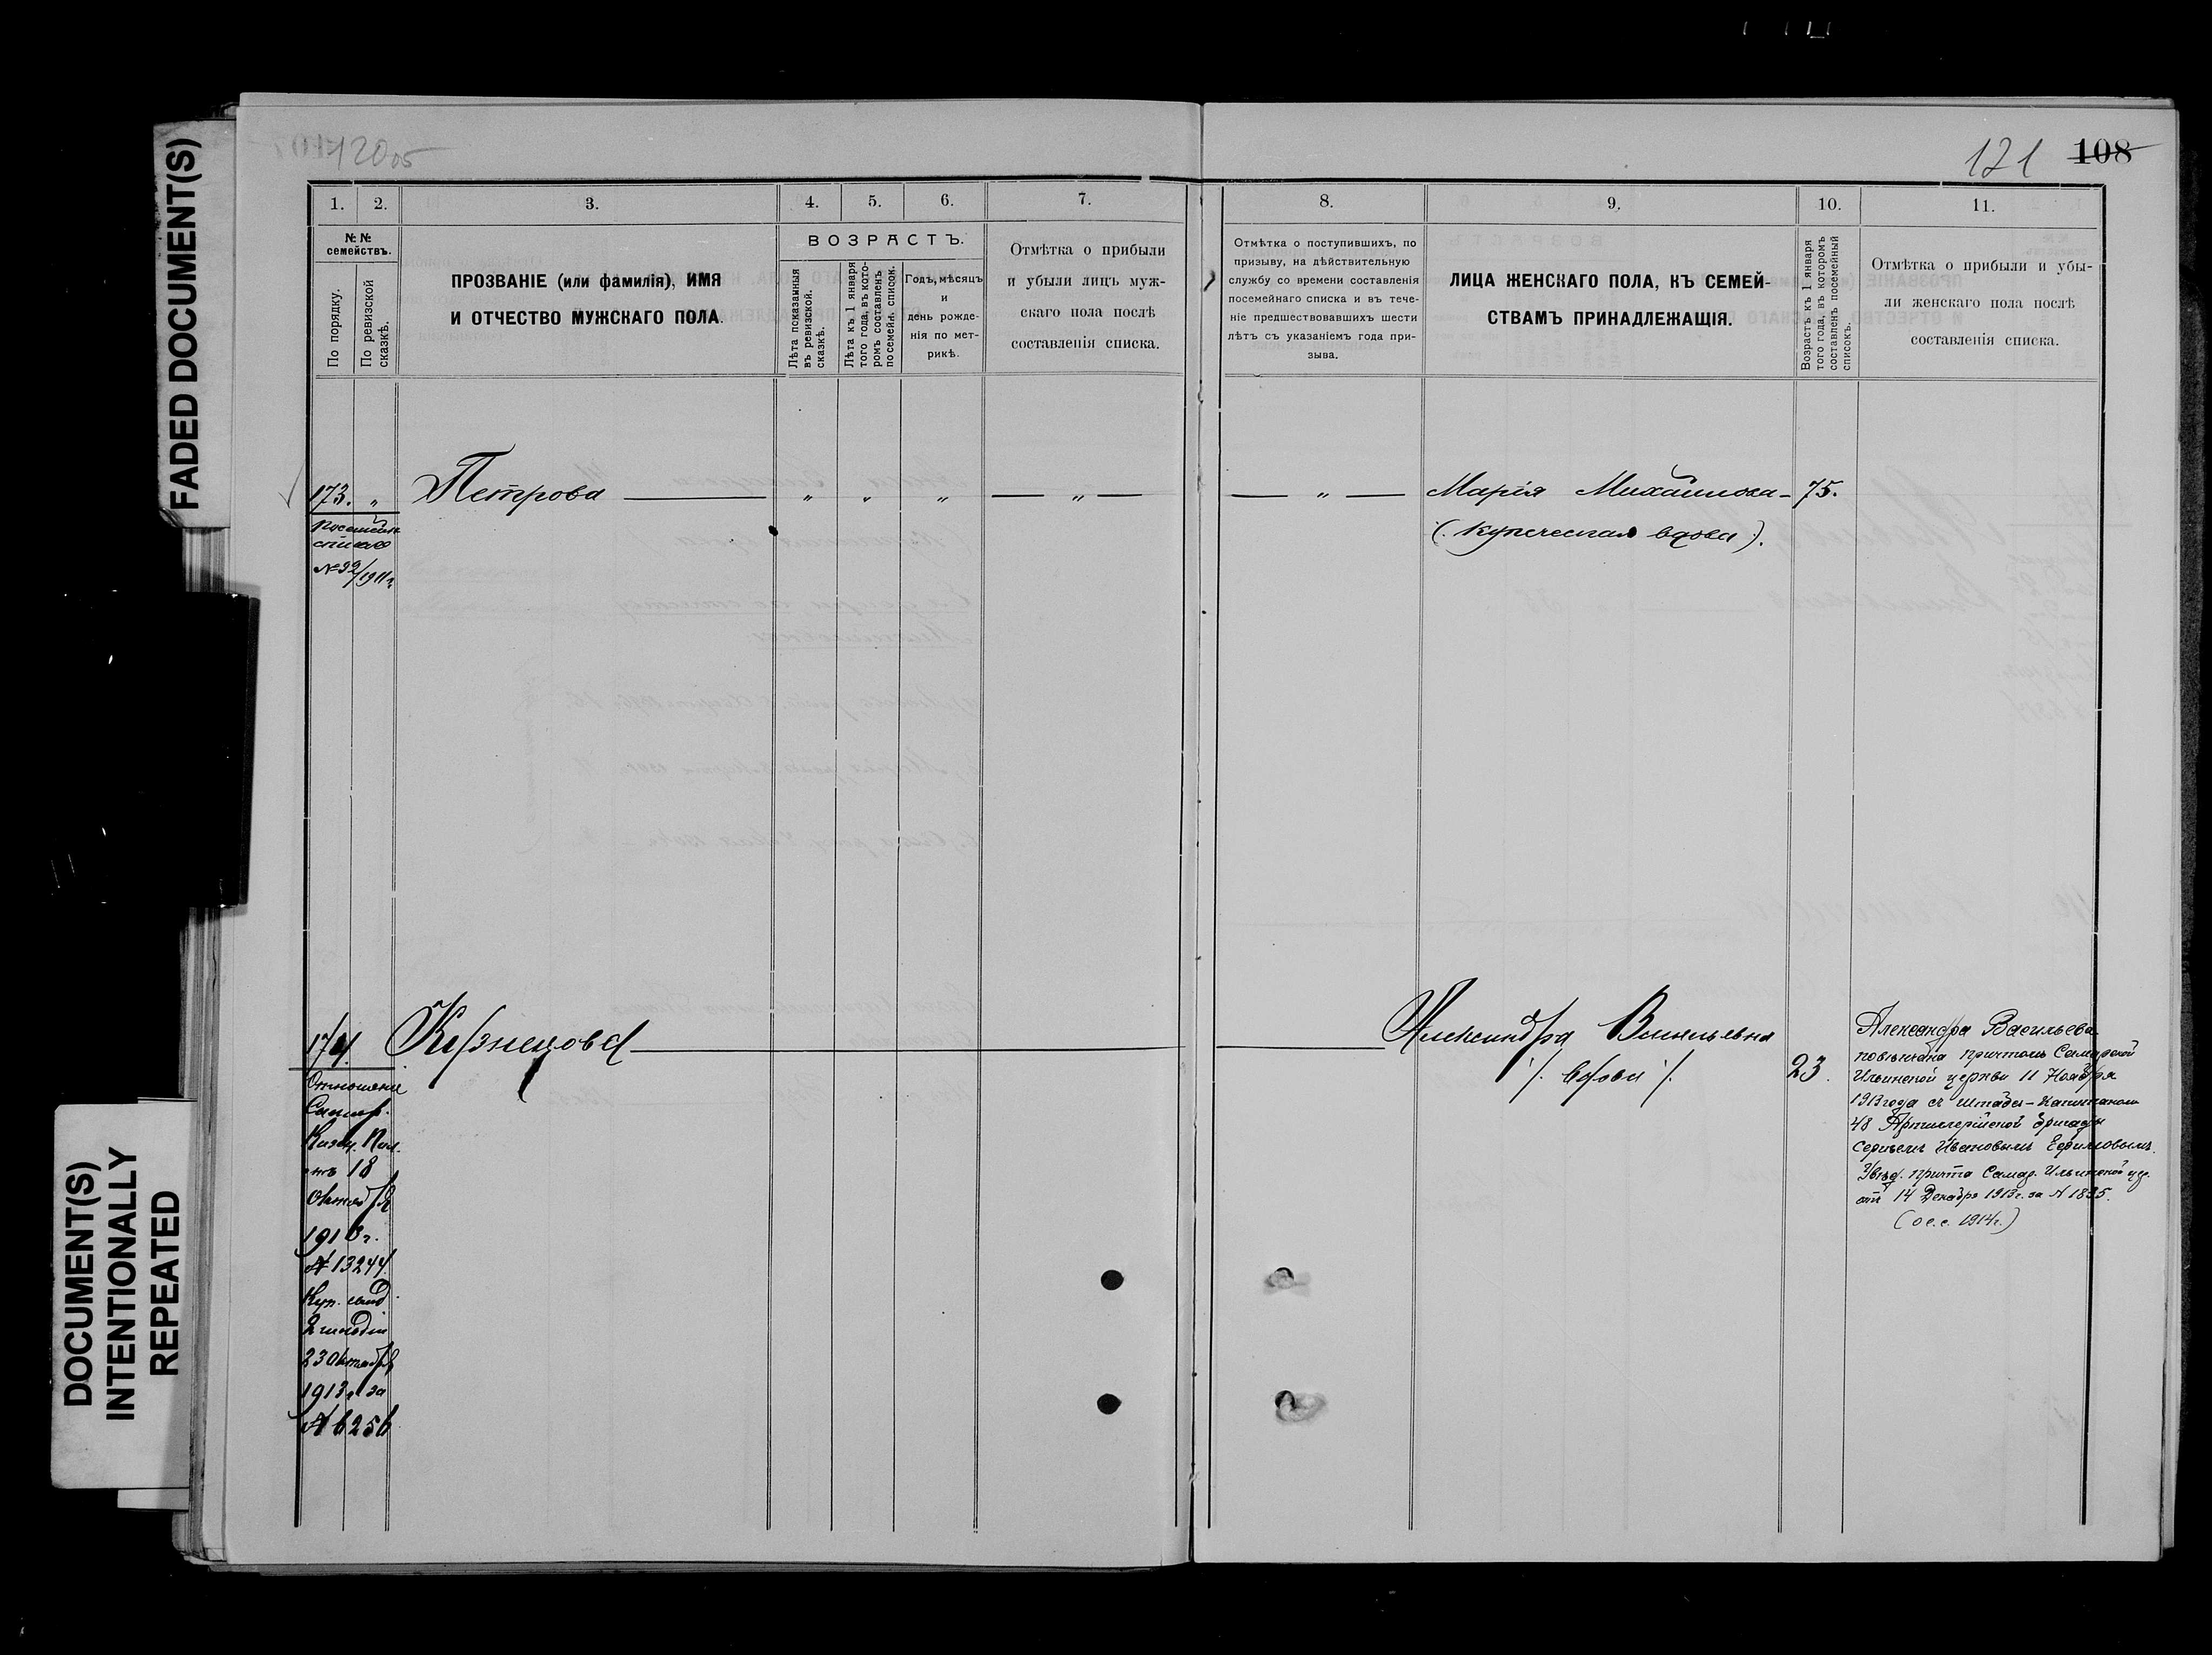 FADED DOCUMENT(S)
DOCUMENT(S)
INTENTIONALLY
REPEATED
120
121 108
1. 2. 3. 4. 5. 6. 7.
№ №
семействъ.
По порядку.
По ревизской
сказкѣ.
ПРОЗВАНІЕ (или фамилія), ИМЯ
И ОТЧЕСТВО МУЖСКАГО ПОЛА.
ВОЗРАСТЪ.
Лѣта показанныя
въ ревизской.
сказкѣ.
Лѣта къ 1 января
того года, въ кото-
ромъ составленъ
посемейн. список.
Годъ, мѣсяцъ
и
день рожде-
нія по мет-
рикѣ.
Отмѣтка о прибыли
и убыли лицъ муж-
скаго пола послѣ
составленія списка.
8. 9. 10. 11.
Отмѣтка о поступившихъ, по
призыву, на дѣйствительную
службу со времени составленія
посемейнаго списка и въ тече-
ніе предшествовавшихъ шести
лѣтъ съ указаніемъ года при-
зыва.
ЛИЦА ЖЕНСКАГО ПОЛА, КЪ СЕМЕЙ-
СТВАМЪ ПРИНАДЛЕЖАЩІЯ.
Возрастъ къ 1 января
того года, въ которомъ
составленъ посемейный
списокъ.
Отмѣтка о прибыли и убы-
ли женскаго пола послѣ
составленія списка.
173. " Петрова — " " " — " —
— " — Марія Михайлова - 75.
(. Купеческая вдова .).
Посемейн.
списка
№ 32/1911 г.
174. Кузнецова
Александра Васильевна
/. Вдова /. 23.
Отношеніе
Самар.
Казен. Пал.
отъ 18
Октября
1913 г.
№ 13244
Куп. свид.
2 гильдіи
23 Октября
1913 г. за
№ 6256
Александра Васильева
повѣнчана причтомъ Самарской
Ильинской церкви 11 Ноября
1913 года съ Штабсъ-Капитаномъ
48 Артиллерійской бригады
Сергѣемъ Ивановымъ Ефимовымъ.
Увѣд. причта Самар. Ильинской цер.
отъ 14 Декабря 1913 г. за № 1835.
(о с.с. 1914 г.)